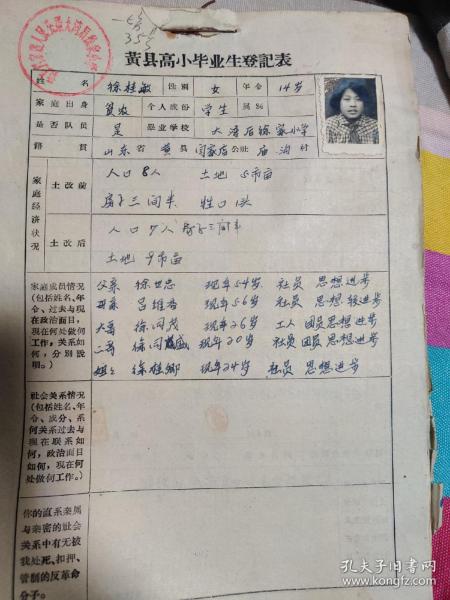 353
黄县高小毕业生登記表
姓名 徐桂敏 性別 女 年令 14岁
家庭出身 貧农 个人成份 学生 属
是否队员 是 毕业学校 大湾后徐家小学
籍貫 山东省 黄县 闫家店公社 庙沟村
家庭經济状况
土改前 人口8人 土地5市亩
房子三间半 牲口1头
土改后 人口7人 房子三间半
土地9市亩
家庭成員情况
(包括姓名、年
令、过去与現
在政治面目,
現在何处做何
工作,关系如
何,分别說
明。)
父亲 徐世忠 現年54岁 社员 思想進步
母亲 吕维香 現年56岁 社员 思想較進步
大哥 徐同茂 現年26岁 工人 团员思想進步
二哥 徐同盛 現年20岁 社员 团员 思想進步
姐姐 徐桂卿 現年24岁 社员 思想進步
社会关系情况
(包括姓名、年
令、成分、系
何关系过去与
現在联系如
何,政治面目
如何,現在何
处做何工作。)
你的直系亲属
与亲密的社会
关系中有无被
我处死、扣押、
管制的反革命
分子。
孔夫子旧书网